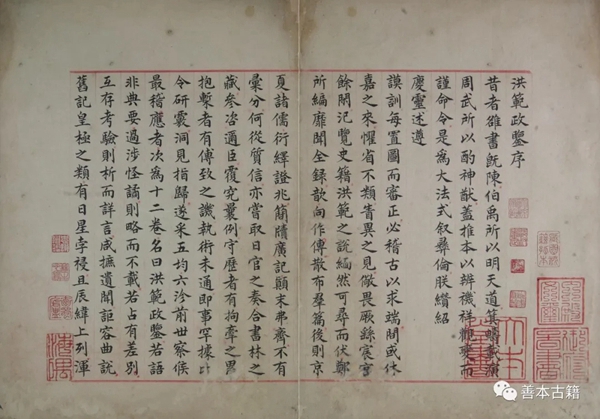 洪範政鑒序
昔者雒書既陳伯禹所以明天道箕疇載演
周武所以酌神猷蓋推本以辨禨祥觀變而
謹命令是為大法式叙彞倫朕纉紹
慶靈述遵
謨訓每置圖而審正必稽古以求端間或休
嘉之來懼省不類眚異之見儆畏厥繇宸
餘閒汜覽史籍洪範之說緬然可尋而伏鄭
所編靡聞全録歆向作傳散布羣篇後則京
夏諸儒衍繹證兆簡牘廣記顛末弗齊不有
彙分何從質信亦嘗取日官之奏合書林之
藏參咨邇臣覆究曩例守曆者有拘牽之累
抱槧者有傅致之譏執術未通即事罕據比
令研覈洞見指歸遂采五均六沴前世察候
最稽應者次為十二卷名曰洪範政鑒若語
非典要過涉怪譎則略而不載若占有差別
互存考驗則析而詳言咸摭遺聞詎容曲說
舊記皇極之類有日星孛祲且辰緯上列渾
善本古籍